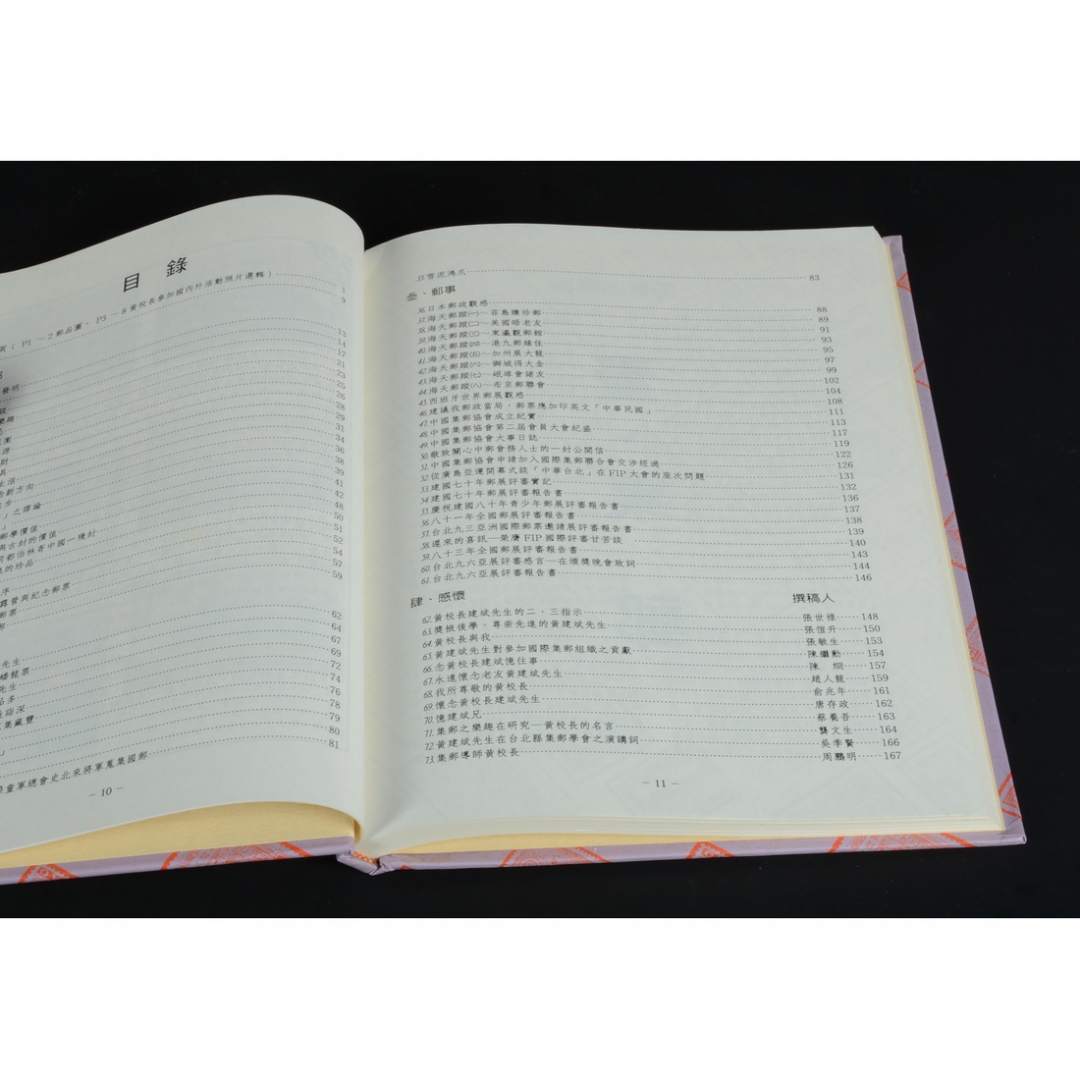 目錄
（P1－2郵品圖、P3－8黃校長參加國內外活動照片選輯）……1
9
13
14
發明……17
21
23
25
樂趣……26
28
29
31
財……34
長……36
生活……38
的新方向……39
步……41
」之謬論……42
郵學價值……48
與古封的價值……50
司都伯林寄中國一幾封……51
的珍品……52
54
序……57
露營與紀念郵票……59
郵票
郵
62
64
先生……67
蟠龍票……69
72
先生……74
品多……76
78
集藏豐……79
80
」……81
童軍總會史北來將軍蒐集國郵
－10－
35.雪泥鴻爪……83
叁、郵事
36.日本郵政觀感……88
37.海天郵蹤㈠—菲島購珍郵……89
38.海天郵蹤㈡—美國晤老友……91
39.海天郵蹤㈢—東瀛觀郵館……93
40.海天郵蹤㈣—港九郵緣佳……95
41.海天郵蹤㈤—加州展大龍……97
42.海天郵蹤㈥—獅城得大金……99
43.海天郵蹤㈦—岷埠會諸友……102
44.海天郵蹤㈧—布京郵聯會……104
45.西班牙世界郵展觀感……108
46.建議我郵政當局，郵票應加印英文「中華民國」……111
47.中國集郵協會成立紀實……113
48.中國集郵協會第二屆會員大會紀盛……117
49.中國集郵協會大事日誌……119
50.敬致關心中郵會務人士的一封公開信……122
51.中國集郵協會申請加入國際集郵聯合會交涉經過……126
52.從廣島亞運開幕式談「中華台北」在FIP大會的座次問題……131
53.建國七十年郵展評審實記……132
54.建國七十年郵展評審報告書……136
55.慶祝建國八十年青少年郵展評審報告書……137
56.八十一年全國郵展評審報告書……138
57.台北九三亞洲國際郵票邀請展評審報告書……139
58.遲來的喜訊—榮膺FIP國際評審甘苦談……140
59.八十三年全國郵展評審報告書……143
60.台北九六亞展評審感言—在頒獎晚會致詞……144
61.台北九六亞展評審報告書……146
肆、感懷 撰稿人
62.黃校長建斌先生的二、三指示……張世標……148
63.獎掖後學，尊崇先進的黃建斌先生……張愷升……150
64.黃校長與我……張敏生……153
65.黃建斌先生對參加國際集郵組織之貢獻……陳繼勳……154
66.念黃校長建斌憶往事……陳　烱……157
67.永遠懷念老友黃建斌先生……趙人龍……159
68.我所尊敬的黃校長……俞兆年……161
69.懷念黃校長建斌先生……唐存政……162
70.憶建斌兄……蔡養吾……163
71.集郵之樂趣在研究—黃校長的名言……龔文生……164
72.黃建斌先生在台北縣集郵學會之演講詞……吳季賢……166
73.集郵導師黃校長……周鵬明……167
－11－